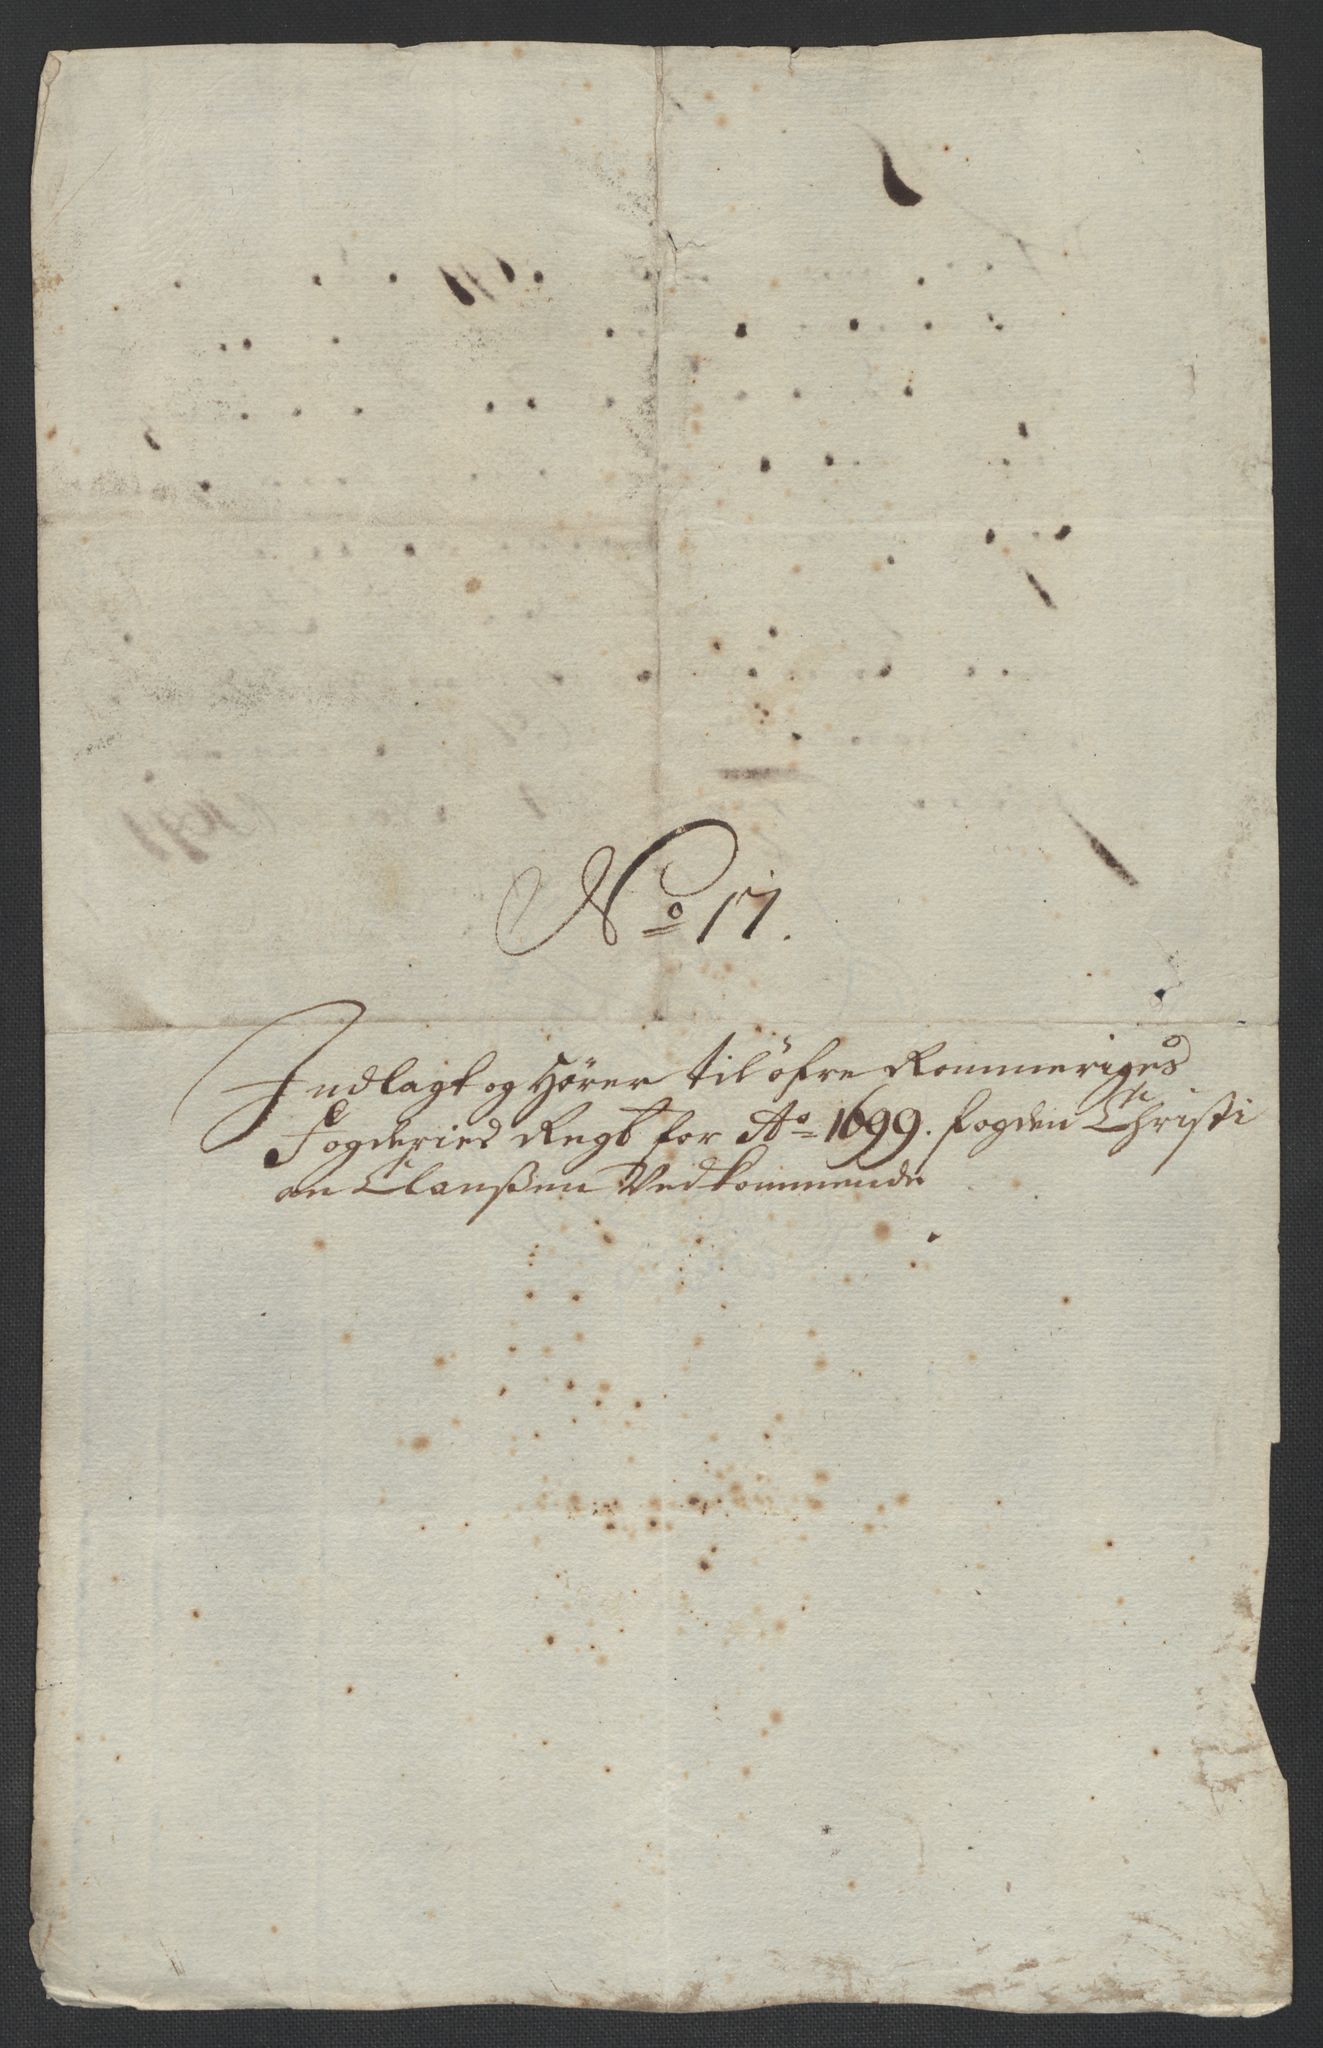 No 17.
Indlagt og Hører til öfre Rommeriges
Fogderies Regb for Ao 1699. fogden Christi
an Clanßen Vedkommende